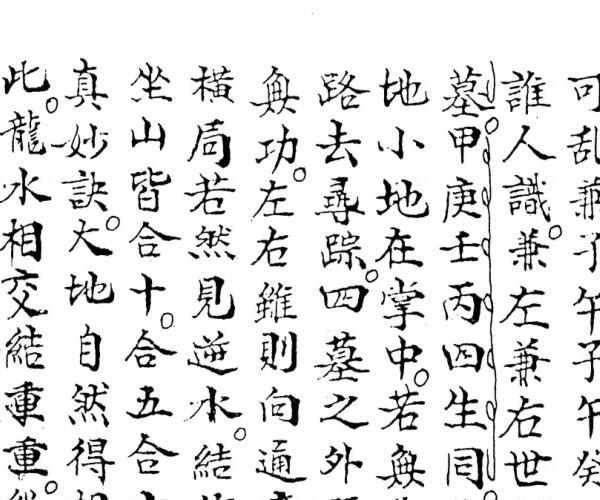 可乱兼子午子午癸
誰人識兼左兼右世
墓甲庚壬丙四生同
地小地在掌中若無
路去尋踪四墓之外
無功左右雖則向通
橫局若然見逆水結
坐山皆合十合五合
真妙訣大地自然得
此龍水相交結重重